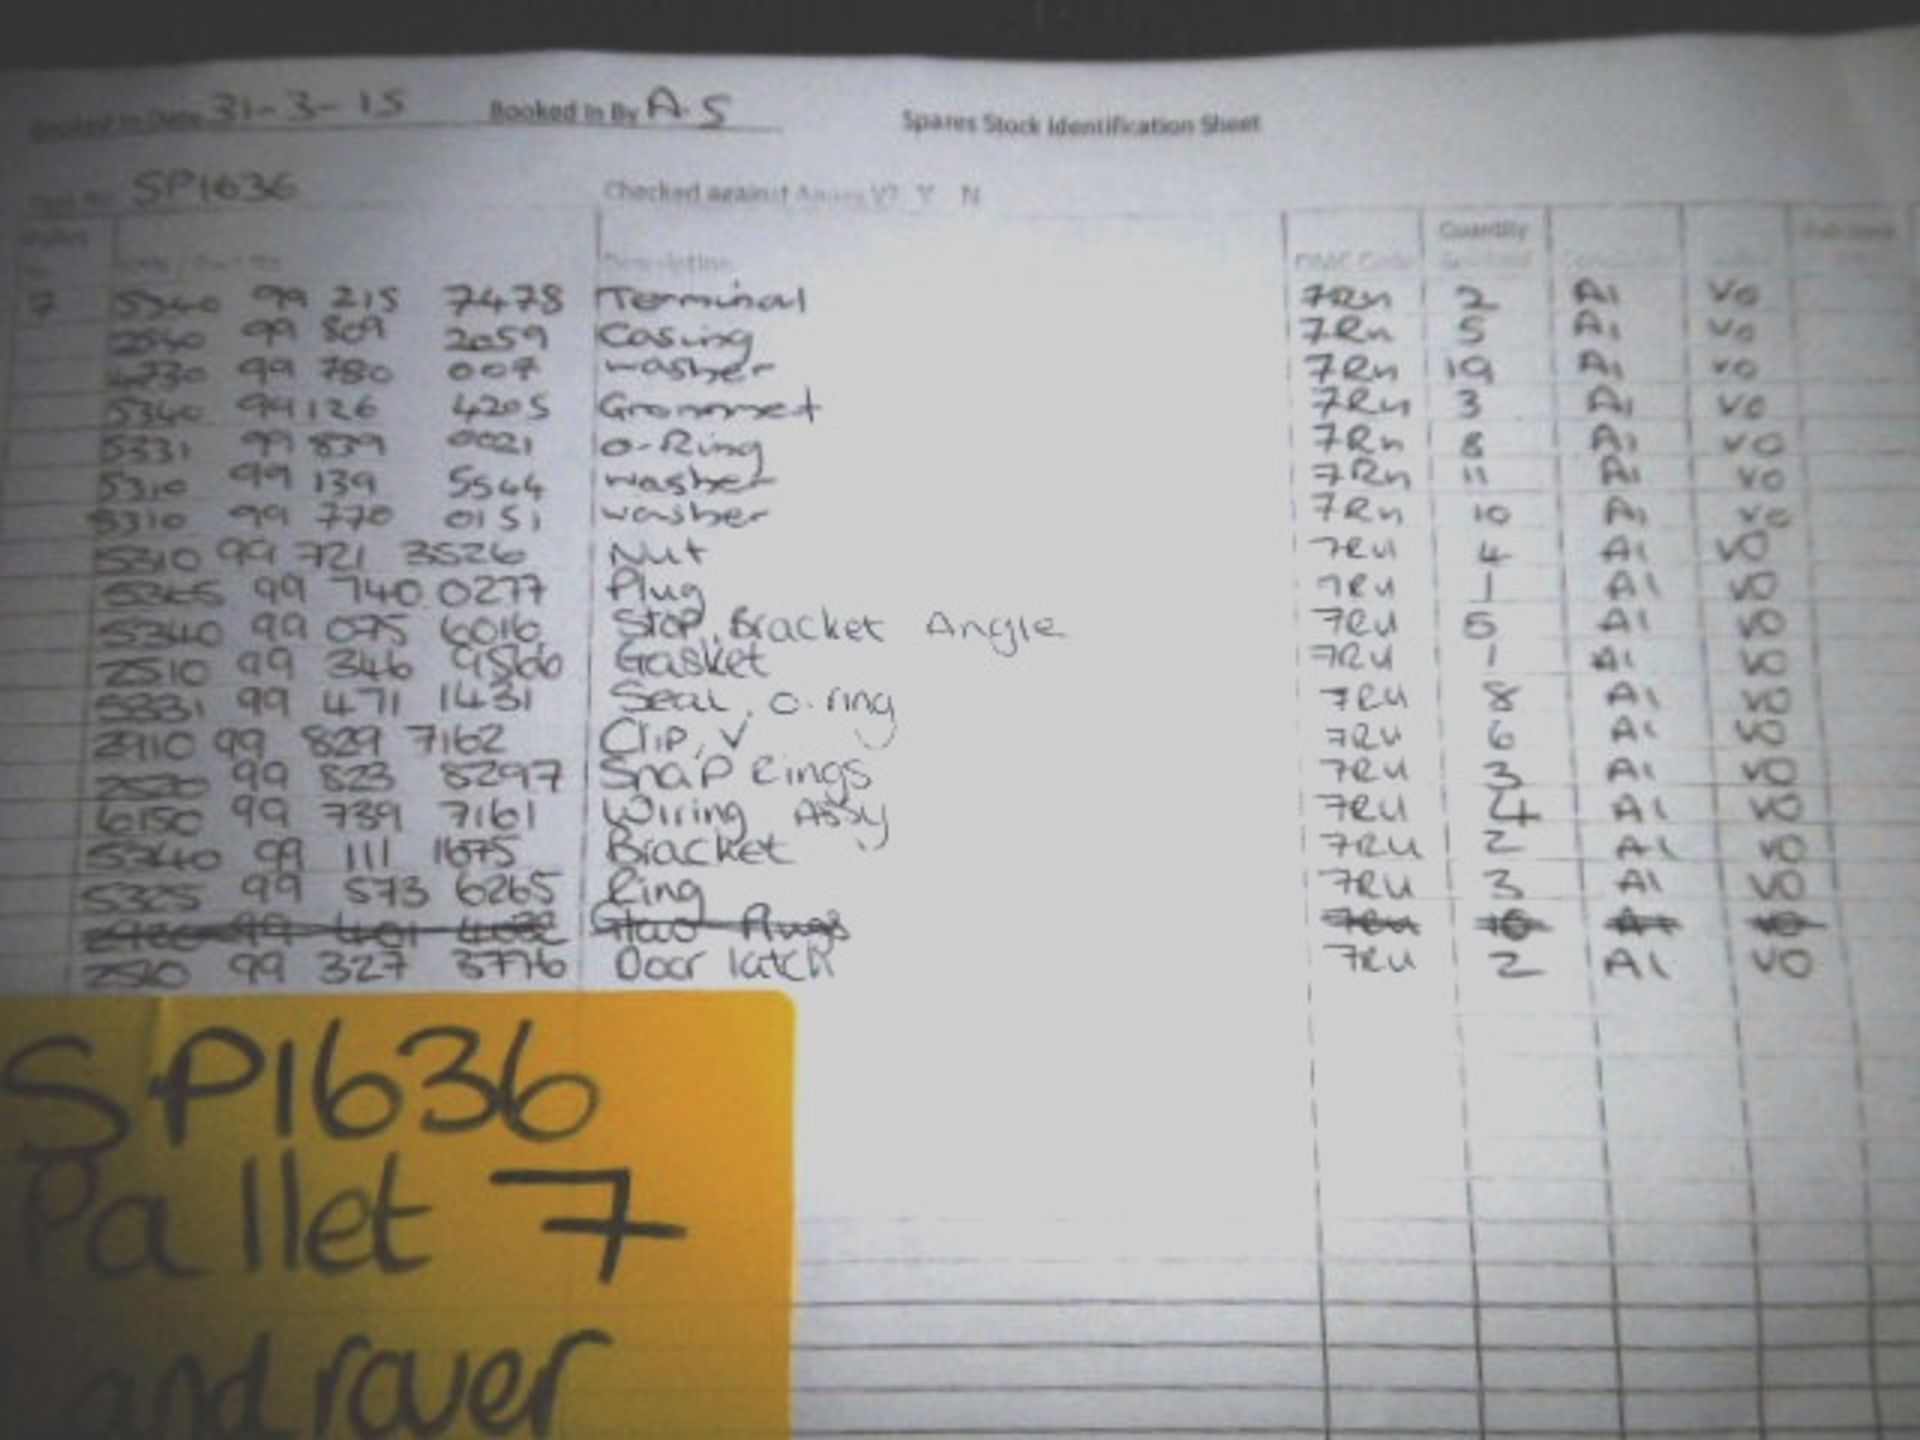 Booked In Date 31-3-15 Booked In By A.S Spares Stock Identification Sheet
SP1636 Checked against Y N
Quantity
Description DMC Code
7 99 215 7478 Terminal 7RU 2 A1 V0
99 809 2059 Casing 7RU 5 A1 V0
99 780 007 washer 7RU 19 A1 V0
5340 99 126 4205 Grommet 7RU 3 A1 V0
5331 99 839 0021 O-Ring 7RU 8 A1 V0
5310 99 139 5544 washer 7RU 11 A1 V0
5310 99 770 0151 washer 7RU 10 A1 V0
5310 99 721 3526 Nut 7RU 4 A1 V0
99 740 0277 Plug 7RU 1 A1 V0
5340 99 075 6016 Stop, Bracket Angle 7RU 5 A1 V0
2510 99 346 Gasket 7RU 1 A1 V0
5331 99 471 1431 Seal, O.ring 7RU 8 A1 V0
2910 99 829 7162 Clip, V 7RU 6 A1 V0
2520 99 823 8297 Snap Rings 7RU 3 A1 V0
6150 99 739 7161 Wiring Assy 7RU 4 A1 V0
5340 99 111 1675 Bracket 7RU 2 A1 V0
5325 99 573 6265 Ring 7RU 3 A1 V0
99 Plugs
99 327 3776 Door latch 7RU 2 A1 V0
SP1636
Pallet 7
androver